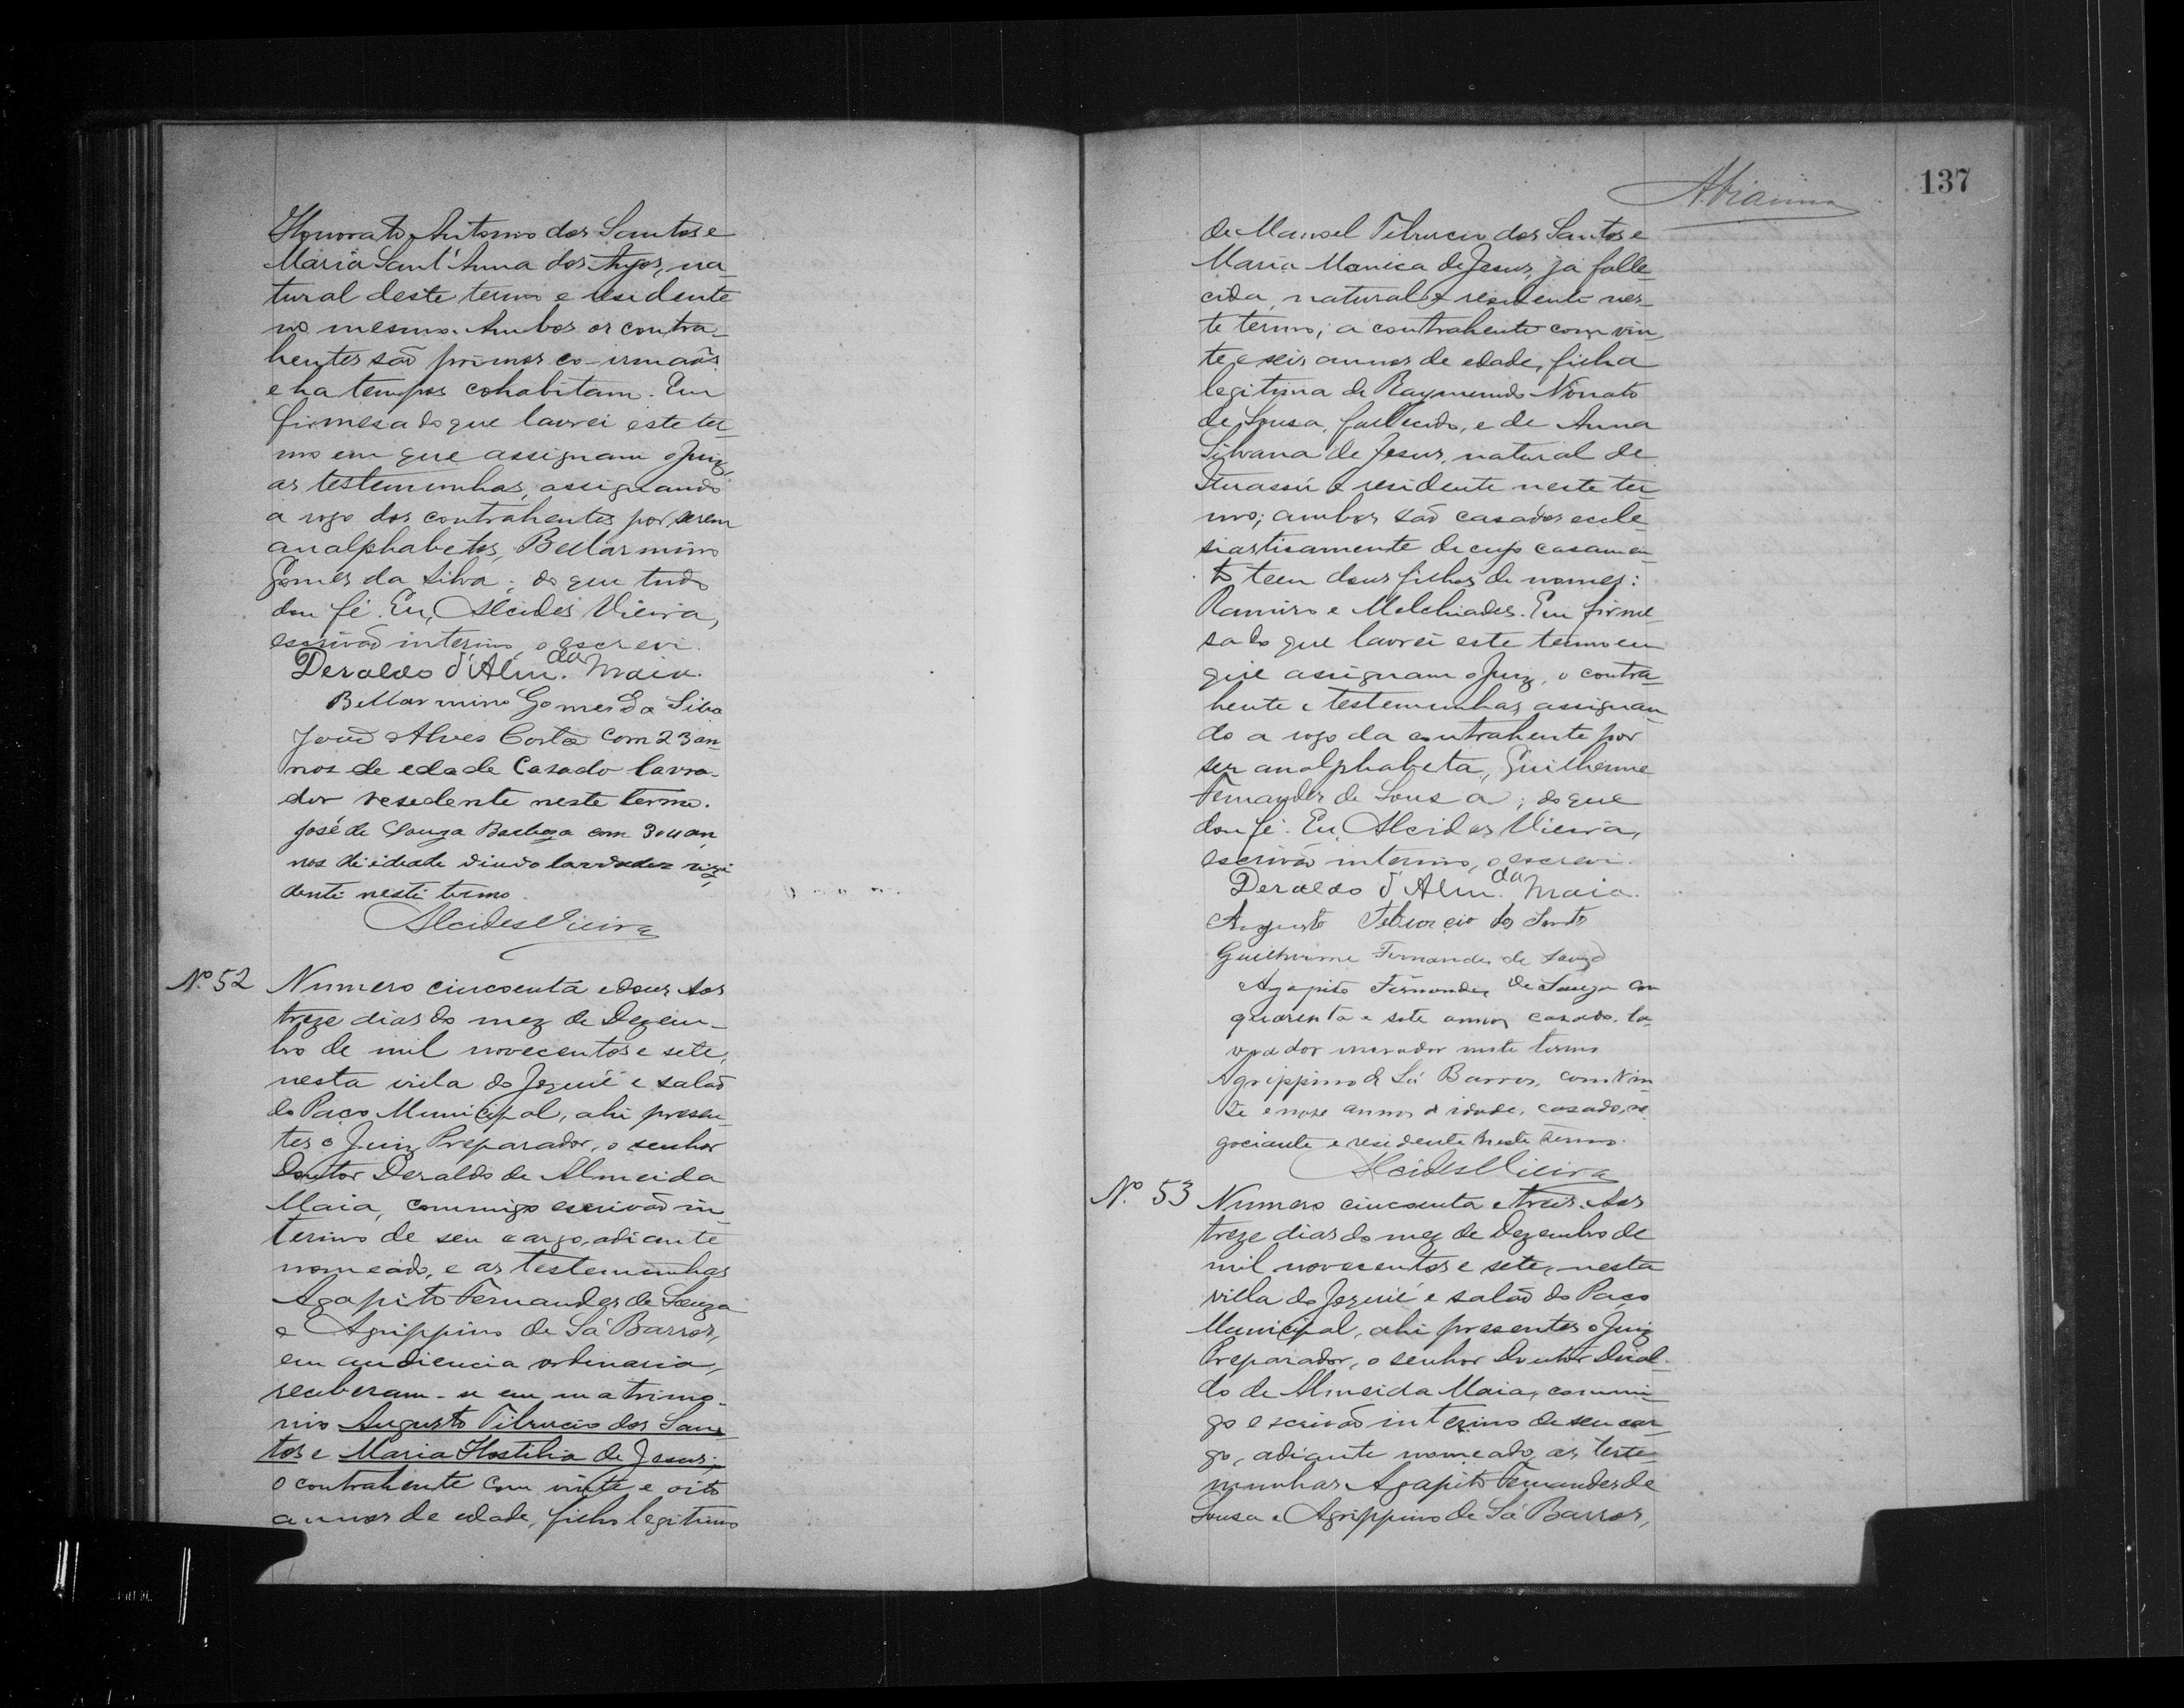 Honorato Antonio dos Santos e
Maria Sant'Anna dos Anjos, na-
tural deste termo e residente
no mesmo. Ambos os contra-
hentes são primos co-irmaõs
e ha tempos cohabitam. Em
firmesa do que lavrei este ter-
mo em que assignam o Juiz,
as testemunhas, assignando
a rogo dos contrahentes por serem
analphabetos, Bellarmino
Gomes da Silva; do que tudo
dou fé. Eu, Alcides Vieira,
escrivão interino, o escrevi.
Deraldo d'Alm.da Maia.
Bellarmino Gomes da Silva
João Alves Costa com 23 an-
nos de edade Casado lavra-
dor resedente neste termo.
José de Souza Barboza com 30 u an
nos di idade viuvo lavrador rizi
denti nesti termo.
Alcides Vieira
Nº 52 Numero cincoenta e dous Aos
treze dias do mez de Dezem-
bro de mil novecentos e sete,
nesta villa do Jequié e salaõ
do Paço Municipal, ahi presen-
tes o Juiz Preparador, o senhor
Doutor Deraldo de Almeida
Maia, commigo escrivão in-
terino de seu cargo, adiante
nomeado, e as testemunhas
Agapito Fernandes de Souza
e Agrippino de Sá Barros,
em audiencia ordinaria,
receberam-se em matrimo-
nio Augusto Tiburcio dos San-
tos e Maria Hostilia de Jesus;
o contrahente com vinte e oito
annos de edade, filho legitimo
137
A. Vianna
de Manoel Tiburcio dos Santos e
Maria Monica de Jesus, já falle-
cida, natural e residente nes-
te termo; a contrahente com vin
te e seis annos de edade, filha
legitima de Raymundo Nonato
de Sousa, fallecido, e de Anna
Silvana de Jesus, natural de
Ituassú e residente neste ter-
mo; ambos são casados eccle-
siasticamente de cujo casamen-
to teem dous filhos de nomes:
Ramiro e Melchiades. Em firme-
sa do que lavrei este termo em
que assignam o Juiz, o contra-
hente e testemunhas assignan-
do a rogo da contrahente por
ser analphabeta, Guilherme
Fernandes de Sousa; do que
dou fé. Eu, Alcides Vieira,
escrivão interino, o escrevi.
Deraldo d'Alm.da Maia.
Augusto Tiburcio dos Santos
Guilherme Fernandes de Souza
Agapito Fernandes de Souza com
quarenta e sete annos, casado, la-
vrador morador neste termo
Agrippino de Sá Barros, com vin-
te e nove annos de idade, casado, ne
gociante e residente neste termo.
Alcides Vieira
Nº 53 Numero cincoenta e tres. Aos
treze dias do mez de Dezembro de
mil novecentos e sete, nesta
villa do Jequié e salaõ do Paço
Municipal, ahi presentes o Juiz
Preparador, o senhor Doutor Deral-
do de Almeida Maia, commi-
go escrivão interino de seu car-
go, adiante nomeado, as teste-
munhas Agapito Fernandes de
Sousa e Agrippino de Sá Barros,